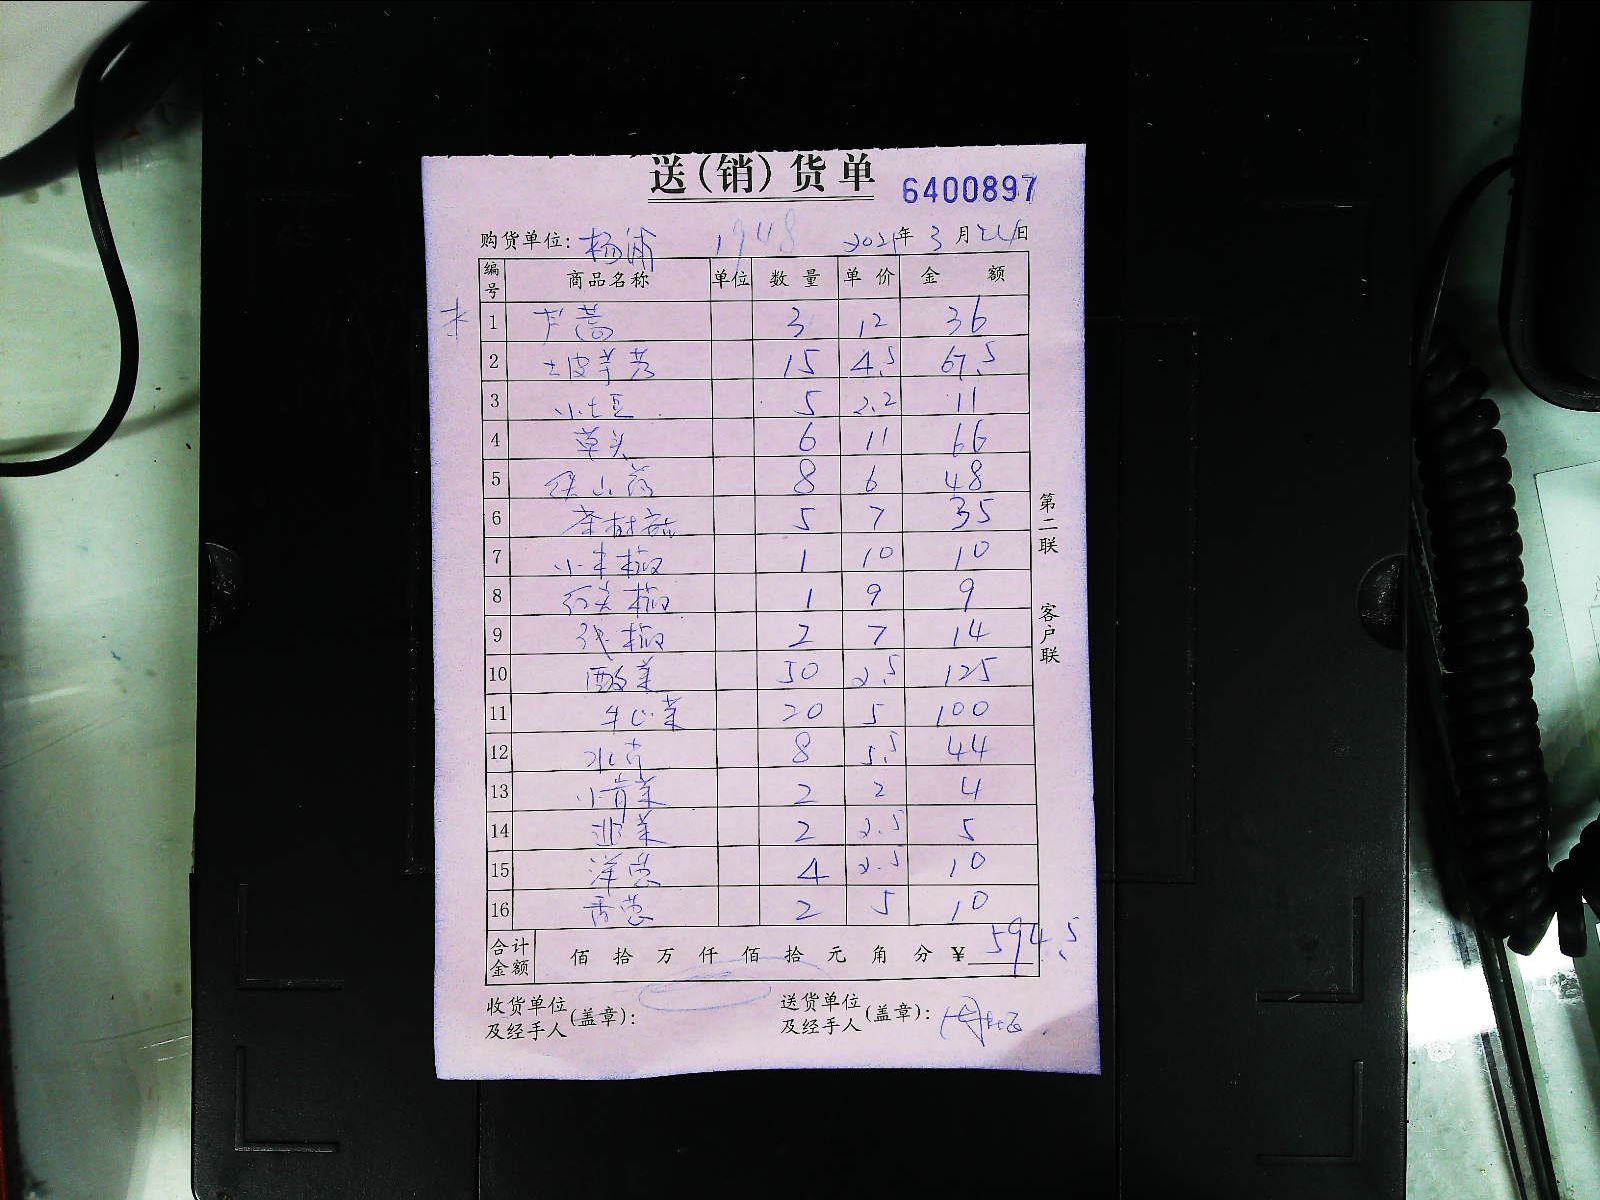 送(销)货单
6400897
购货单位: 杨浦 1948 2021年3月24日
编号 商品名称 单位 数量 单价 金额
1 芦蒿 3 12 36
2 土皮芋艿 15 4.5 67.5
3 小土豆 5 2.2 11
4 草头 6 11 66
5 铁山药 8 6 48
6 茶树菇 5 7 35
7 小米椒 1 10 10
8 红尖椒 1 9 9
9 线椒 2 7 14
10 酸菜 50 2.5 125
11 牛心菜 20 5 100
12 水芹 8 5.5 44
13 小青菜 2 2 4
14 韭菜 2 2.5 5
15 洋葱 4 2.5 10
16 香葱 2 5 10
合计金额 佰拾万仟佰拾元角分 ¥ 594.5
收货单位及经手人(盖章):
送货单位及经手人(盖章):
第二联 客户联